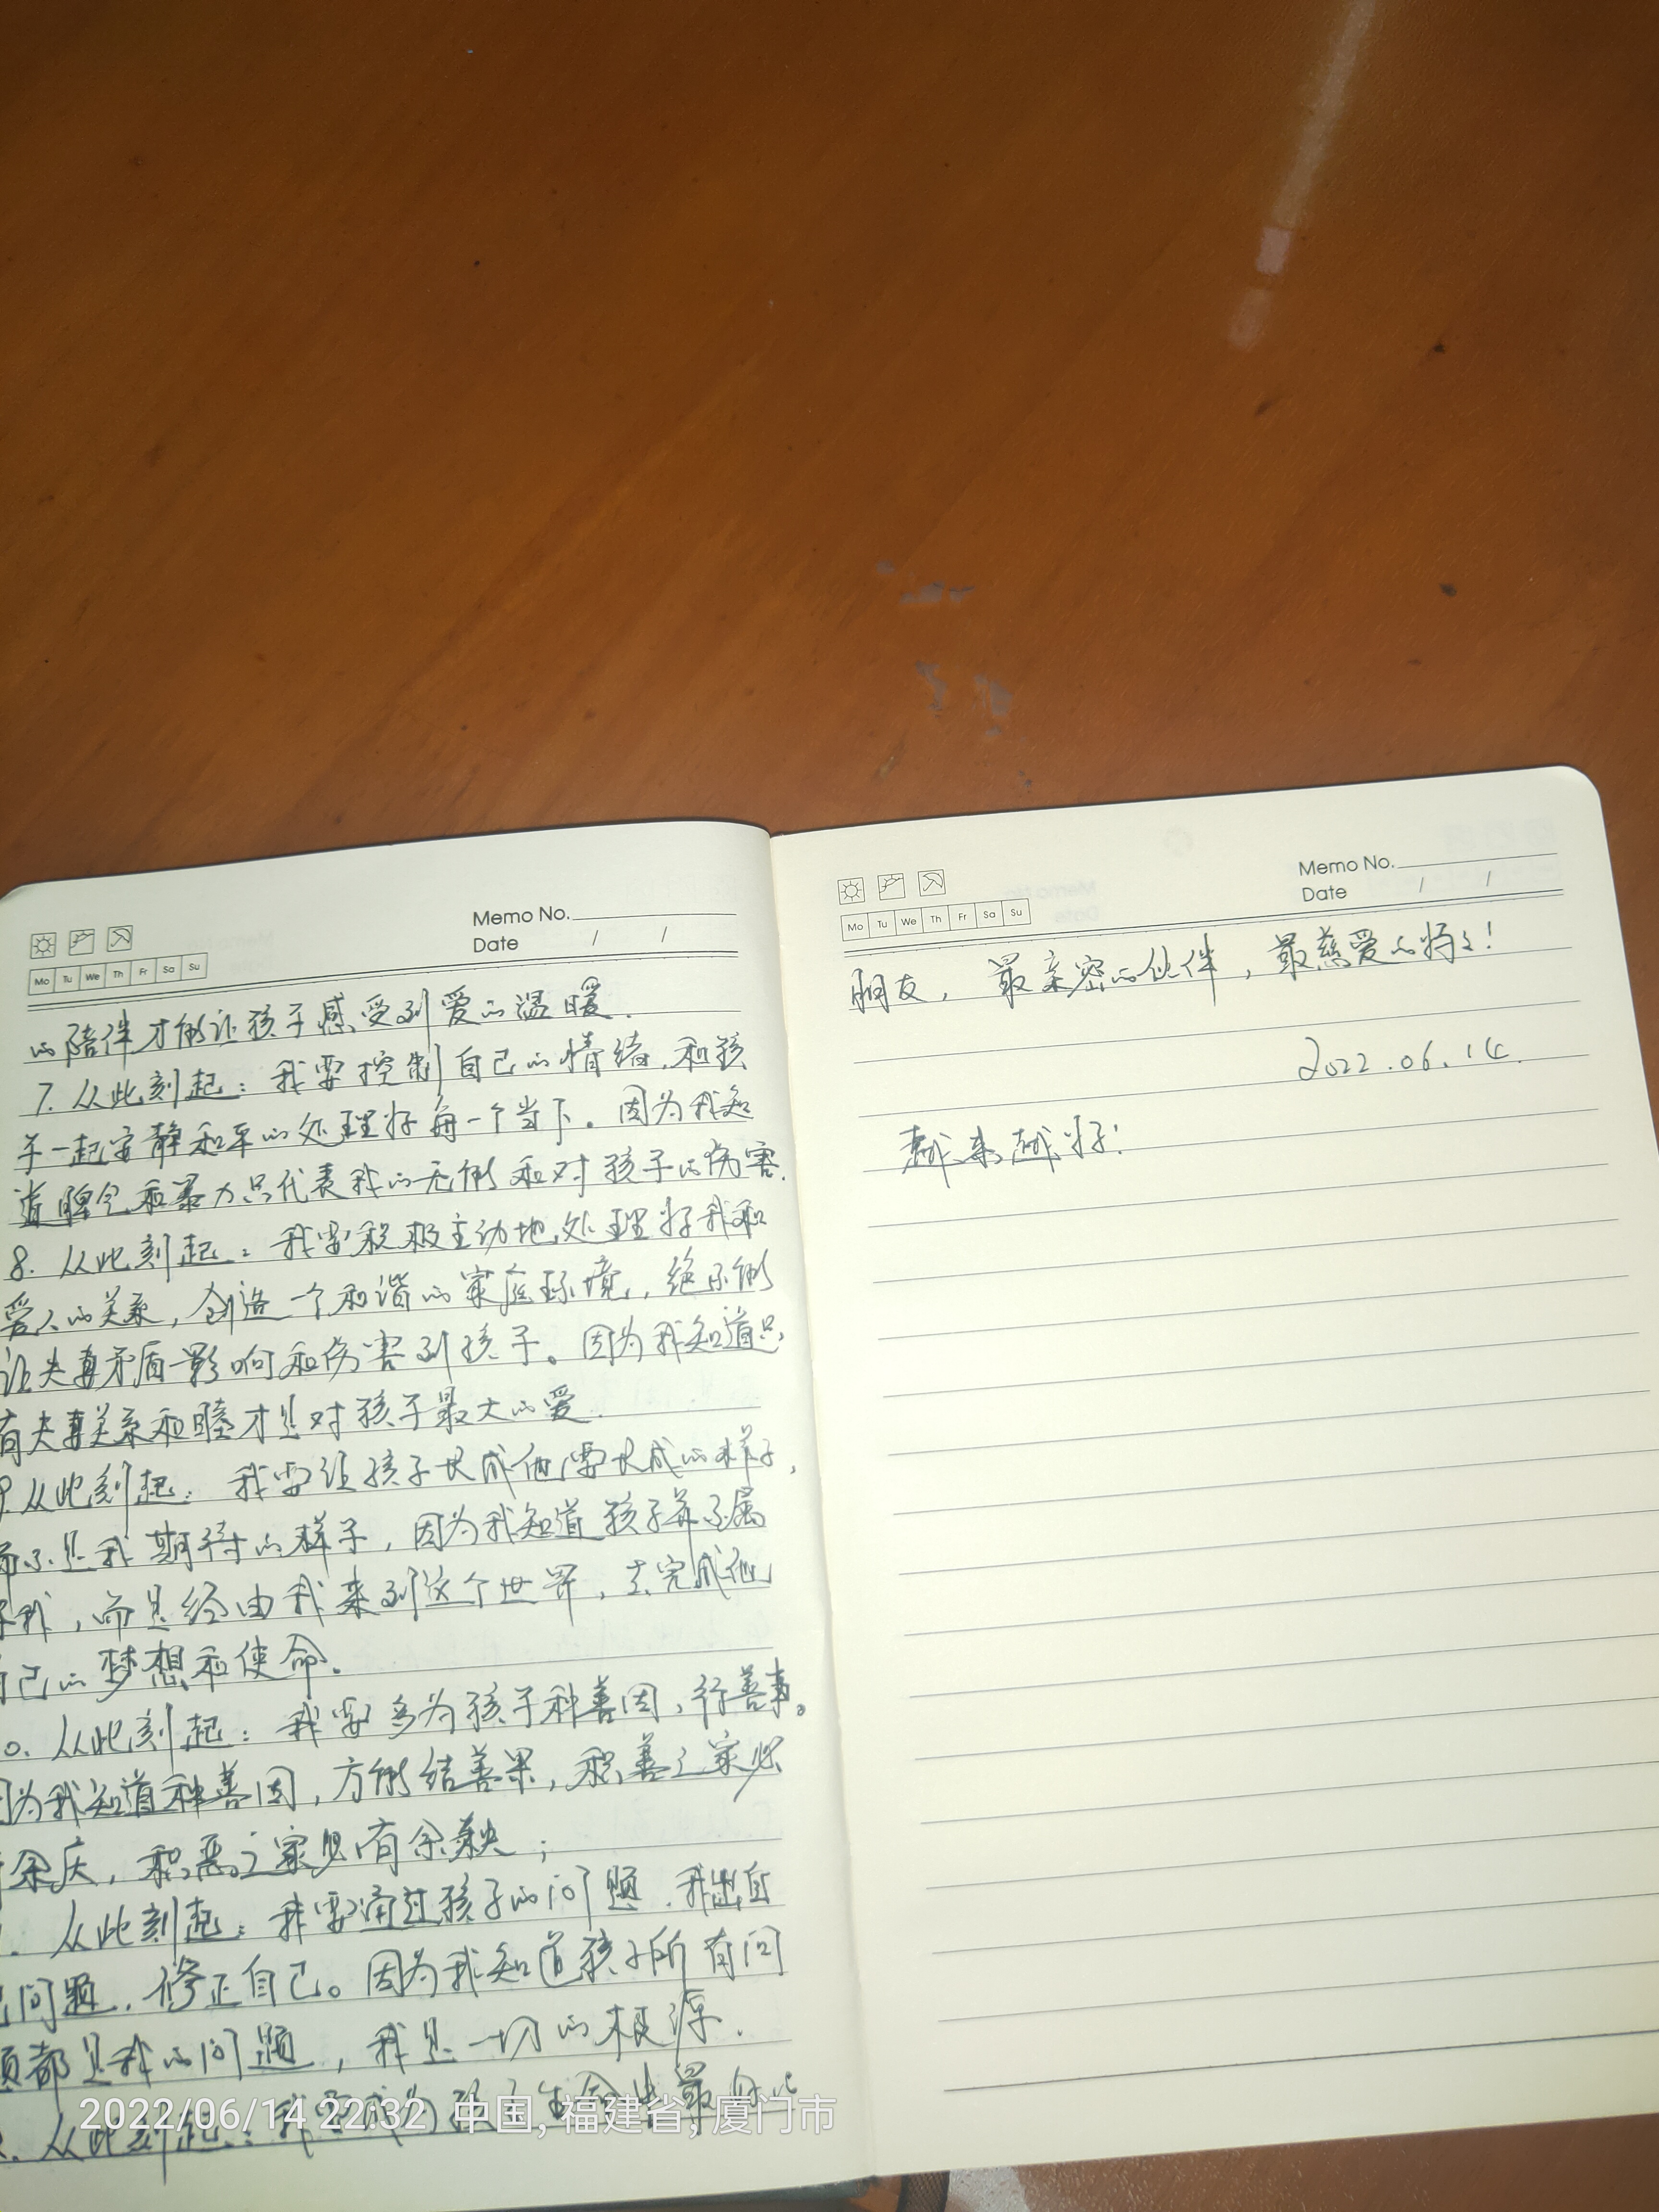 Memo No.
Date / /
Mo Tu We Th Fr Sa Su
的陪伴才能让孩子感受到爱的温暖.
7. 从此刻起：我要控制自己的情绪，和孩
子一起安静和平的处理好每一个当下。因为我知
道脾气和暴力只代表我的无能和对孩子的伤害.
8. 从此刻起：我要积极主动地处理好我和
爱人的关系，创造一个和谐的家庭环境，绝不能
让夫妻矛盾影响和伤害到孩子。因为我知道只
有夫妻关系和睦才是对孩子最大的爱.
9. 从此刻起：我要让孩子长成他要长成的样子，
而不是我期待的样子，因为我知道孩子并不属
于我，而是经由我来到这个世界，去完成他
自己的梦想和使命.
0. 从此刻起：我要多为孩子种善因，行善事。
因为我知道种善因，方能结善果，积善之家必
余庆，积恶之家必有余殃；
. 从此刻起：我要通过孩子的问题，找出自
己问题，修正自己。因为我知道孩子所有问
题都是我的问题，我是一切的根源.
. 从此刻起：我要成为孩子生命中最好的
2022/06/14 22:32 中国, 福建省, 厦门市
Memo No.
Date / /
Mo Tu We Th Fr Sa Su
朋友，最亲密的伙伴，最慈爱的妈妈!
2022.06.14.
越来越好!